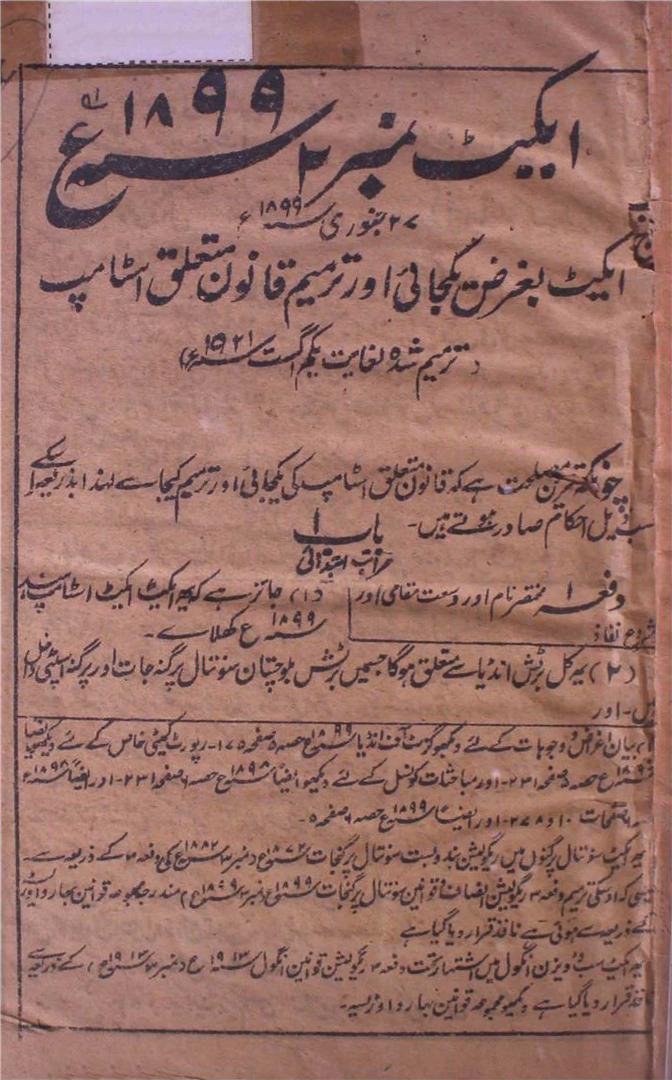 ایکیٹ نمبر ۲ ۱۸۹۹ سنہ ع
۲۷ جنوری ۱۸۹۹ سنہ ء
ایکیٹ بغرض یکجائی اور ترمیم قانون متعلق اسٹامپ
(ترمیم شدہ لغایت یکم اگست ۱۹۲۱ سنہ ء)
چونکہ قرین مصلحت ہے کہ قانون متعلق اسٹامپ کی یکجائی اور ترمیم کیجاے لہذا بذریعہ اسکے
حسب ذیل احکام صادر ہوتے ہیں۔
باب ۱
مراتب ابتدائی
دفعہ ۱ مختصر نام اور وسعت مقامی اور
شروع نفاذ
(۱) جائز ہے کہ یہ ایکیٹ ایکیٹ اسٹامپ ہند
۱۸۹۹ سنہ ع کھلاے۔
(۲) یہ کل برٹش انڈیا سے متعلق ہوگا جسمیں برٹش بلوچستان سونتال پرگنہ جات اور پرگنہ اسپٹی داخل
ہیں۔ اور
بیان اغراض و وجوہات کے لئے دیکھو گزٹ آف انڈیا ۱۸۹۷ سنہ ع حصہ ۵ صفحہ ۱۷۵۔ رپورٹ کمیٹی خاص کے لئے دیکھو ایضا
۱۸۹۸ سنہ ع حصہ ۵ صفحہ ۲۳۱۔ اور مباحثات کونسل کے لئے دیکھو ایضاً ۱۸۹۸ سنہ ع حصہ ۶ صفحہ ۲۳۱۔ اور ایضاً ۱۸۹۸ سنہ ء
صفحات ۱۰ و ۲۷۸۔ اور ایضاً ۱۸۹۹ سنہ ع حصہ ۶ صفحہ ۵۔
یہ ایکیٹ سونتال پرگنوں میں ریگولیشن بندوبست سونتال پرگنجات ۱۸۷۲ سنہ ع (نمبر ۳ ۱۸۷۲ سنہ ع) کی دفعہ ۳ کے ذریعہ سے۔
جیسی کہ اوسکی ترمیم دفعہ ۳ ریگولیشن انصاف و قوانین سونتال پرگنجات ۱۸۹۹ سنہ ع (نمبر ۳ ۱۸۹۹ سنہ ع) مندرجہ مجموعہ قوانین بہار و اوڑیسہ
کے ذریعہ سے ہوئی ہے نافذ قرار دیا گیا ہے
یہ ایکیٹ سب ڈویزن انگول میں اشتہار تحت دفعہ ۳ ریگولیشن قوانین انگول ۱۹۱۳ سنہ ع (نمبر ۳ ۱۹۱۳ سنہ ع) کے ذریعہ سے
نافذ قرار دیا گیا ہے دیکھو مجموعہ قوانین بہار و اوڑیسہ۔